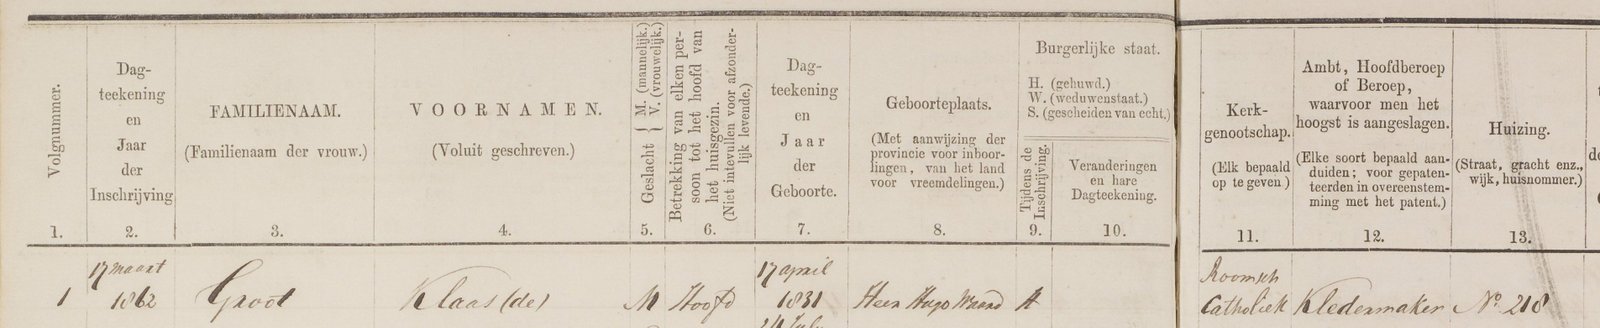 Volgnummer.
1.
Dag-
teekening
en
Jaar
der
Inschrijving
2.
FAMILIENAAM.
(Familienaam der vrouw.)
3.
VOORNAMEN.
(Voluit geschreven.)
4.
Geslacht { M. (mannelijk.)
V. (vrouwelijk.)
5.
Betrekking van elken per-
soon tot het hoofd van
het huisgezin.
(Niet intevullen voor afzonder-
lijk levende.)
6.
Dag-
teekening
en
Jaar
der
Geboorte.
7.
Geboorteplaats.
(Met aanwijzing der
provincie voor inboor-
lingen, van het land
voor vreemdelingen.)
8.
Burgerlijke staat.
H. (gehuwd.)
W. (weduwenstaat.)
S. (gescheiden van echt.)
Tijdens de
Inschrijving.
9.
Veranderingen
en hare
Dagteekening.
10.
Kerk-
genootschap.
(Elk bepaald
op te geven)
11.
Ambt, Hoofdberoep
of Beroep,
waarvoor men het
hoogst is aangeslagen.
(Elke soort bepaald aan-
duiden; voor gepaten-
teerden in overeenstem-
ming met het patent.)
12.
Huizing.
(Straat, gracht enz.,
wijk, huisnommer.)
13.
17 maart 17 april Roomsch
1 1862 Groot Klaas (de) M Hoofd 1831 Heer Hugo Waard H Catholiek Kledermaker No. 218
24 July